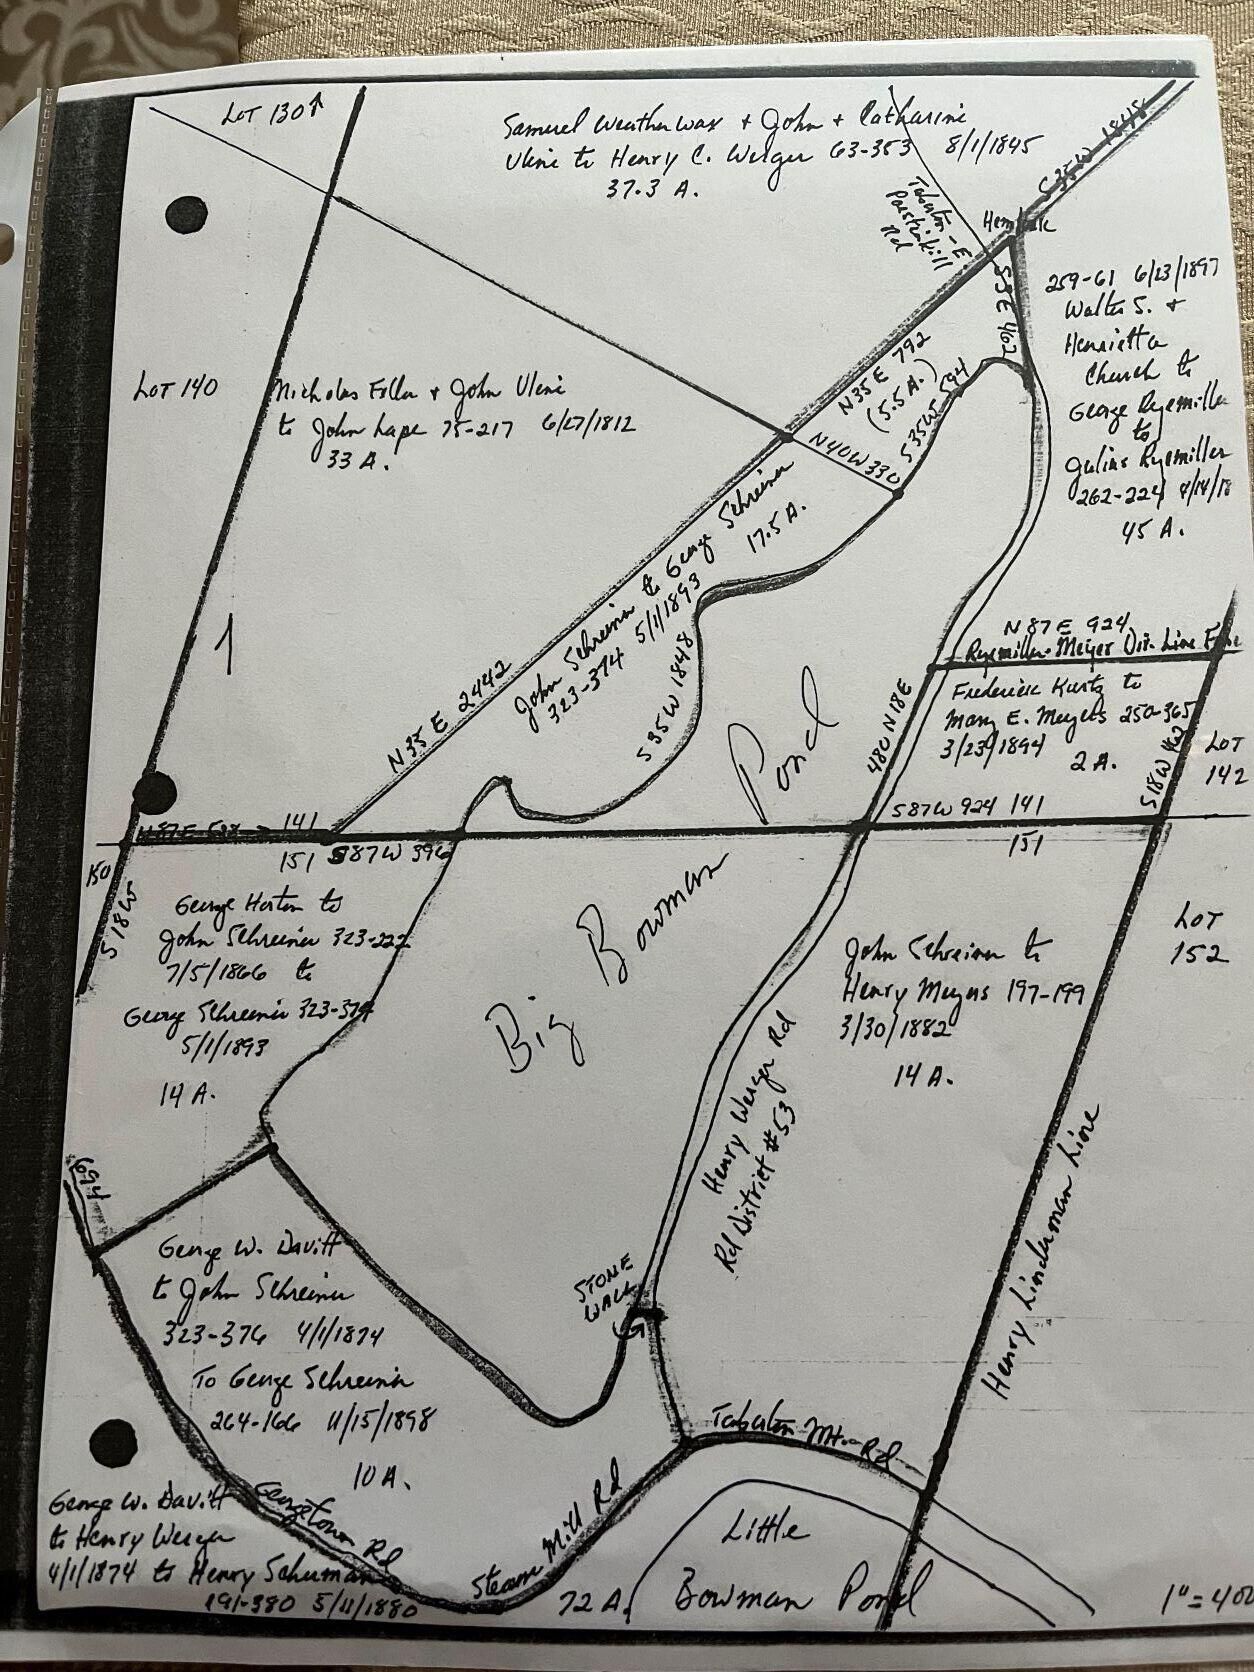 LOT 130↑
Samuel Weatherwax + John + Catharine
Uline to Henry C. Werger 63-353 8/1/1845
37.3 A.
S35W 1848
Taborton-E
Poestenkill
Rd
Hemlock
S5E 462
259-61 6/23/1897
Walter S. +
Henrietta
Church to
George Ryemiller
to
Julius Ryemiller
262-224 4/14/18
45 A.
LOT 140
Nicholas Feller + John Uline
to John Lape 75-217 6/27/1812
33 A.
N35E 792
(5.5 A.)
S35W 594
N40W 330
1
N35E 2442
John Schreiner to George Schreiner
323-374 5/1/1893 17.5 A.
S35W 1848
N87E 924
Ryemiller-Meyer Div. Line Fence
Frederick Kurtz to
Mary E. Meyers 250-365
3/23/1894
2 A.
480 N18E
S18W 462
LOT
142
N87E 528
141
151
S87W 396
S87W 924 141
151
150
S18W
Big Bowman Pond
George Horton to
John Schreiner 323-222
7/5/1866 to
George Schreiner 323-374
5/1/1893
14 A.
LOT
152
John Schreiner to
Henry Meyers 197-199
3/30/1882
14 A.
Henry Werger Rd
Rd District #53
Henry Linderman Line
694
George W. Davitt
to John Schreiner
323-376 4/1/1874
To George Schreiner
264-166 11/15/1898
10 A.
STONE
WALL
Taborton Mt. Rd
George W. Davitt
to Henry Werger
4/1/1874 to Henry Schuman
191-380 5/11/1880
Georgetown Rd
Steam Mill Rd
72 A.
Little
Bowman Pond
1"=400